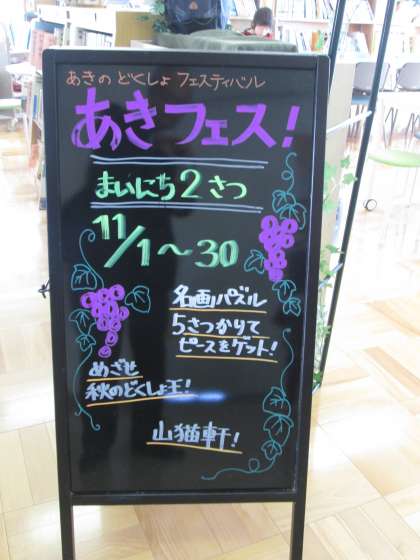 あきの どくしょ フェスティバル
あきフェス!
まいにち2さつ
11/1~30
名画パズル
5さつかりて
ピースをゲット!
めざせ
秋のどくしょ王!
山猫軒!